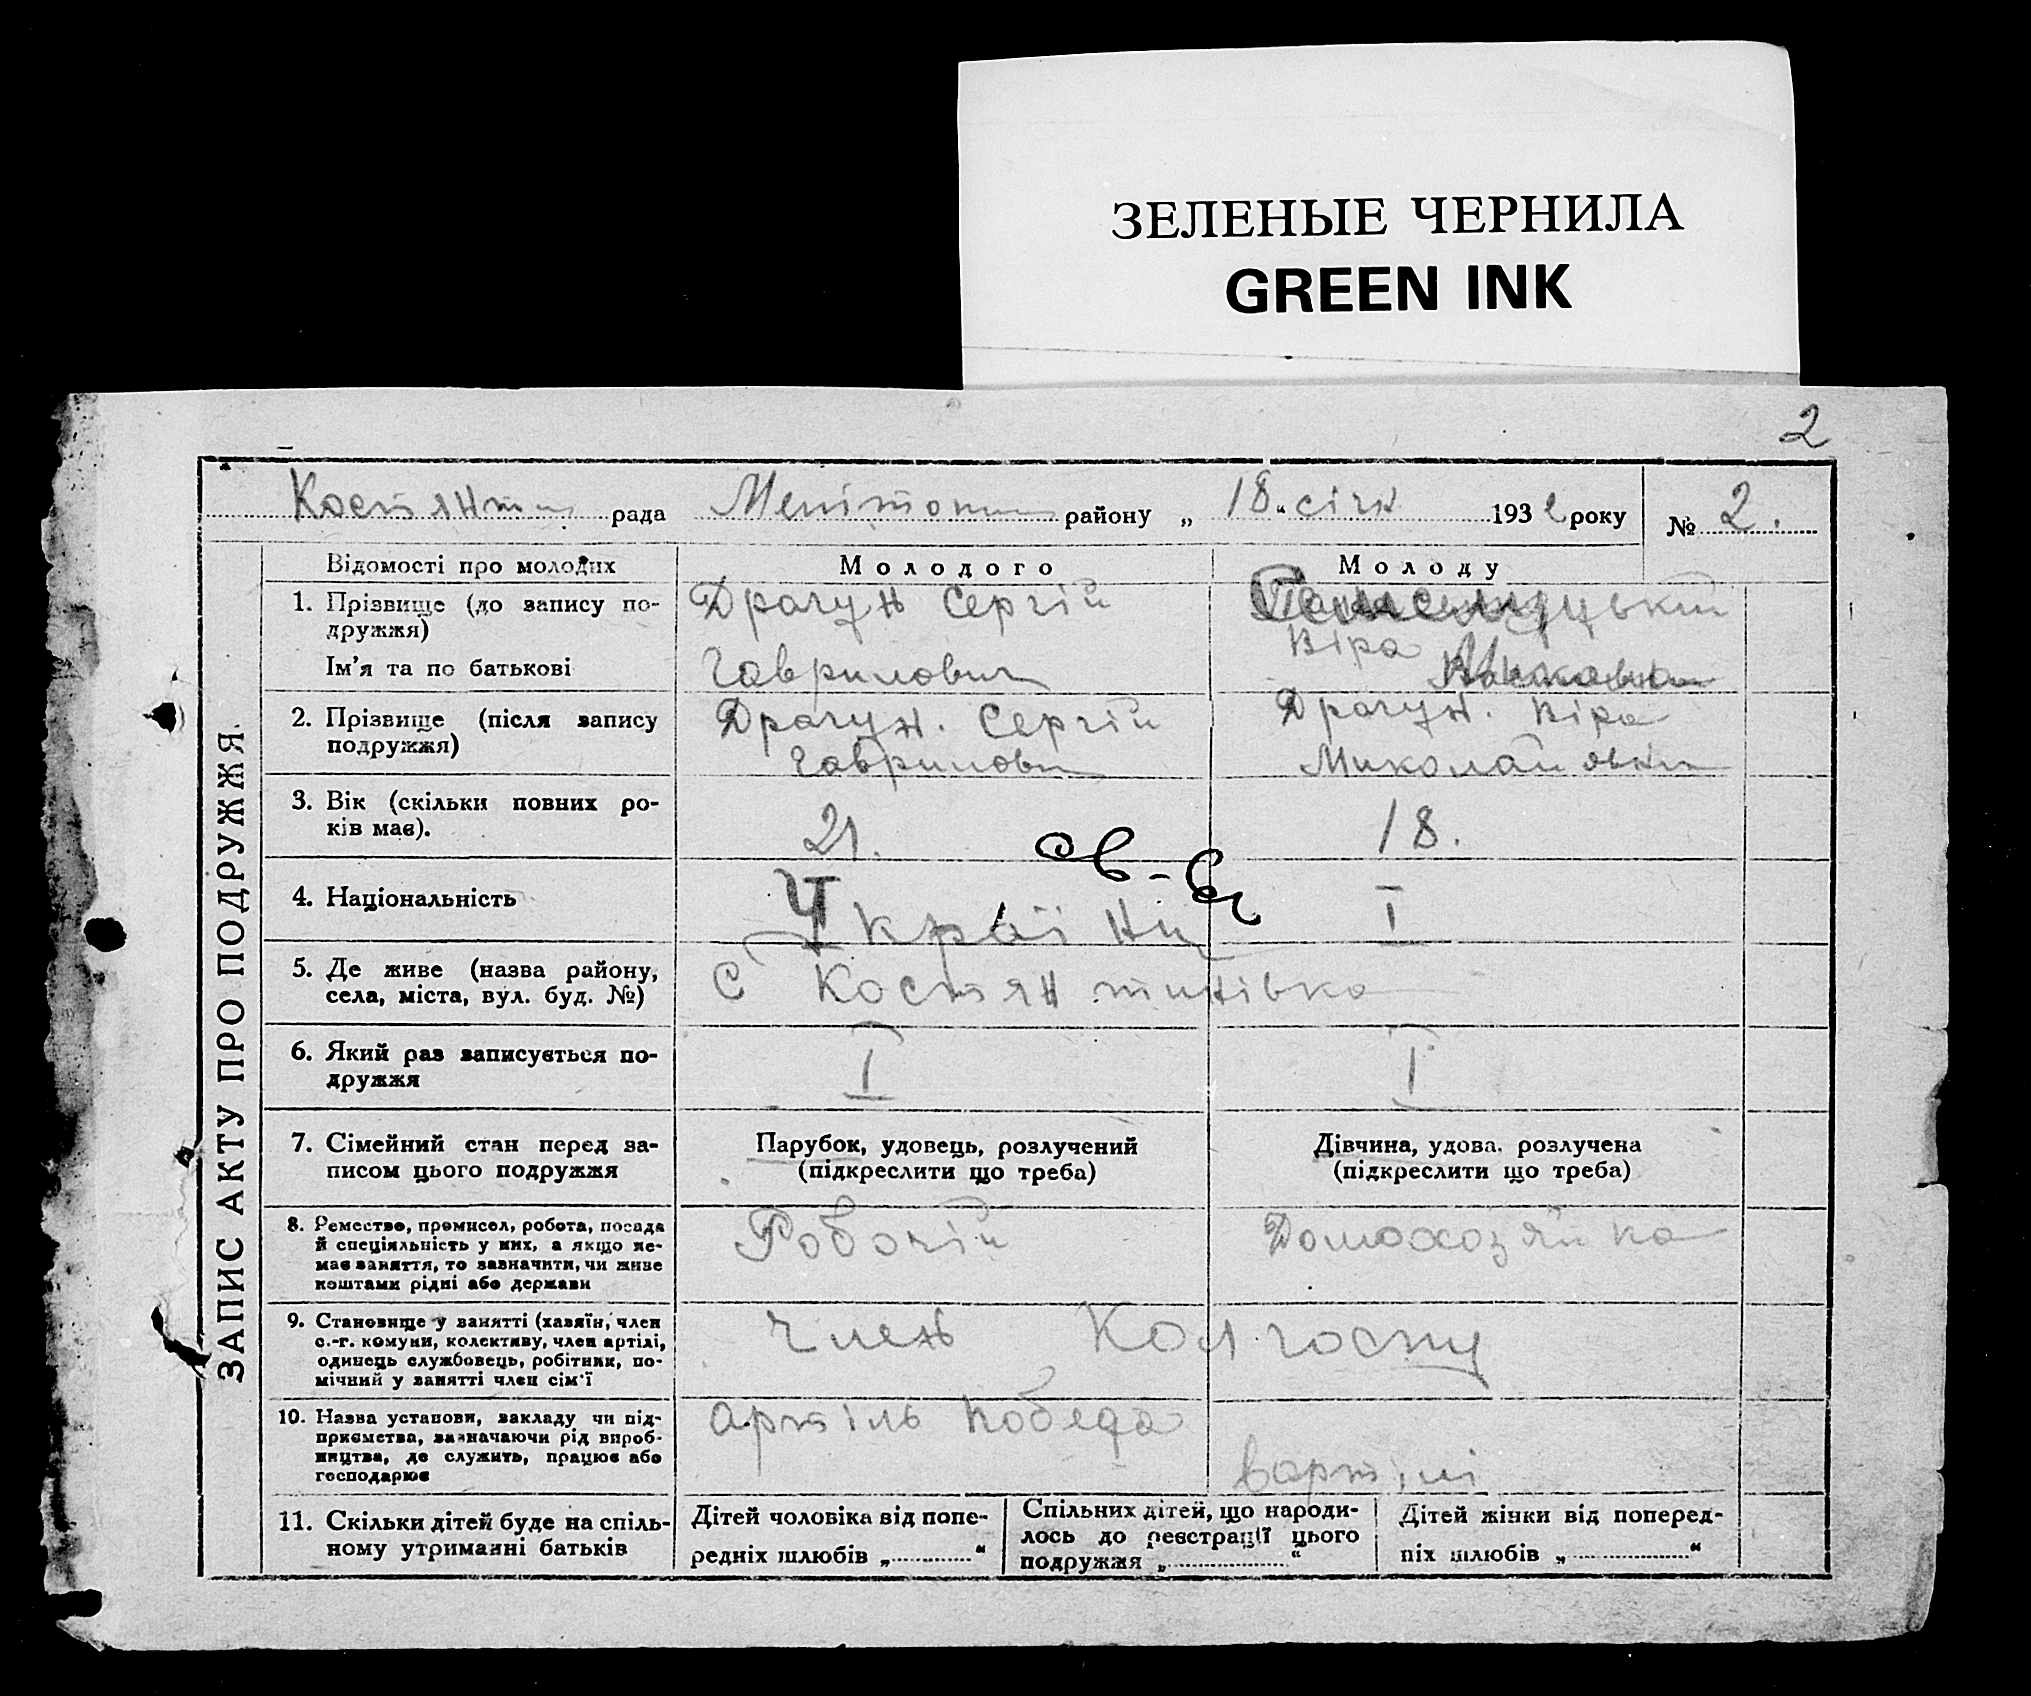 ЗЕЛЕНЫЕ ЧЕРНИЛА
GREEN INK
2
Костянтин рада Мелітопол району „ 18 " січн 1932 року № 2.
ЗАПИС АКТУ ПРО ПОДРУЖЖЯ
Відомості про молодих
Молодого
Молоду
1. Прізвище (до запису по-
дружжя)
Ім'я та по батькові
Драгун Сергій
Гаврилович
Віра
2. Прізвище (після запису
подружжя)
Драгун. Сергій
Гаврилович
Драгун. Віра
Миколаївна
3. Вік (скільки повних ро-
ків має).
21.
18.
4. Національність
Україні
I
5. Де живе (назва району,
села, міста, вул. буд. №)
С Костянтинівка
6. Який раз записується по-
дружжя
I
I
7. Сімейний стан перед за-
писом цього подружжя
Парубок, удовець, розлучений
(підкреслити що треба)
Дівчина, удова, розлучена
(підкреслити що треба)
8. Ремество, промисел, робота, посада
й спеціяльність у них, а якщо не-
має заняття, то зазначити, чи живе
коштами рідні або держави
Робочій
Домохозяйка
9. Становище у занятті (хазяїн, член
с.-г. комуни, колективу, член артілі,
одинець службовець, робітник, по-
мічний у занятті член сім'ї
член Колгоспу
10. Назва установи, закладу чи під-
приємства, зазначаючи рід вироб-
ництва, де служить, працює або
господарює
артіль победа
вартілі
11. Скільки дітей буде на спіль-
ному утриманні батьків
Дітей чоловіка від попе-
редніх шлюбів „ "
Спільних дітей, що народи-
лось до реєстрації цього
подружжя „ "
Дітей жінки від поперед-
ніх шлюбів „ "